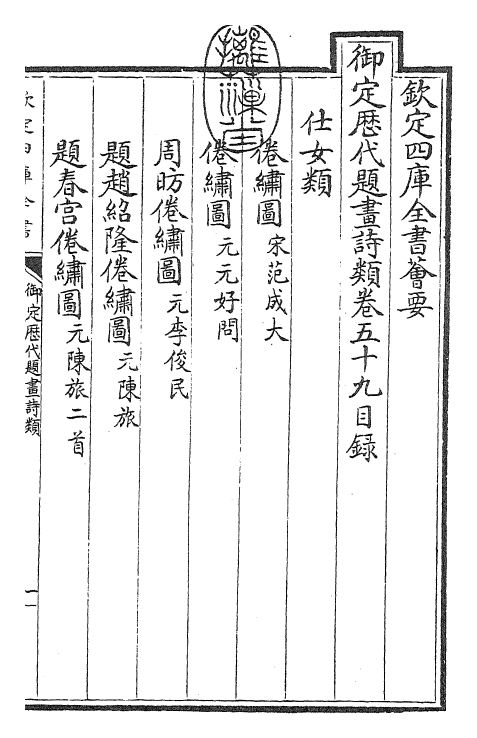 欽定四庫全書薈要
御定歷代題畫詩類卷五十九目録
仕女類
倦繡圖 宋范成大
倦繡圖 元元好問
周昉倦繡圖 元李俊民
題趙紹隆倦繡圖 元陳旅
題春宫倦繡圖 元陳旅二首
欽定四庫全書
御定歷代題畫詩類
一
摛藻堂